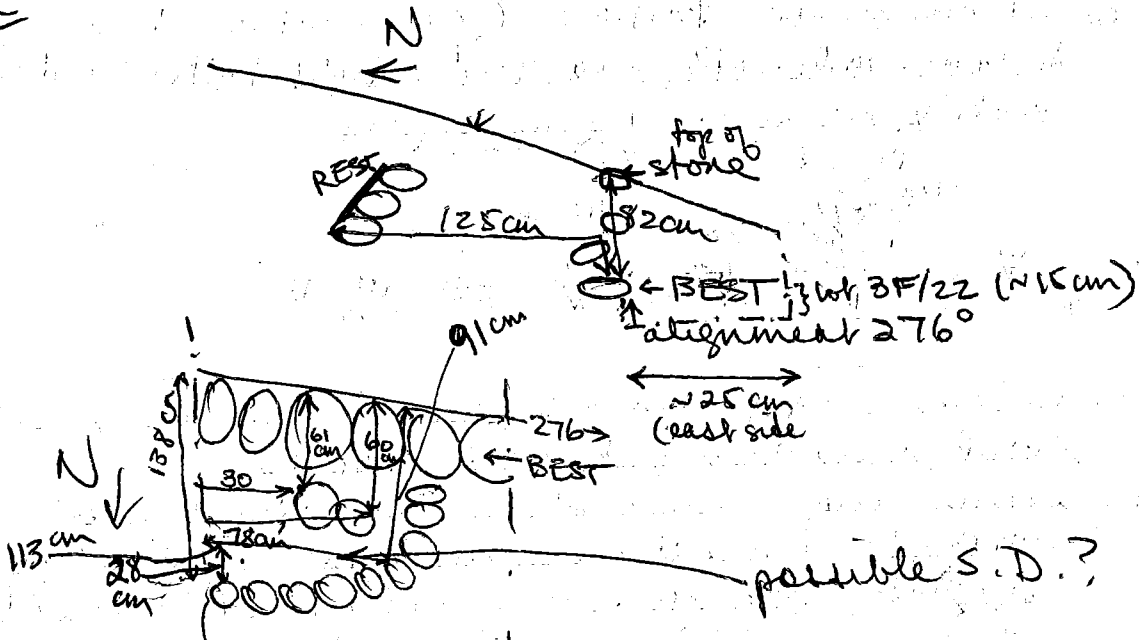 N
top of
stone
REST
125cm
82cm
← BEST
lot 3F/22 (~15cm)
alignment 276°
91 cm
~25 cm
(east side
138 cm
61
cm
60
cm
276→
← BEST
N
30
78cm
113 cm
28
cm
possible S.D.?